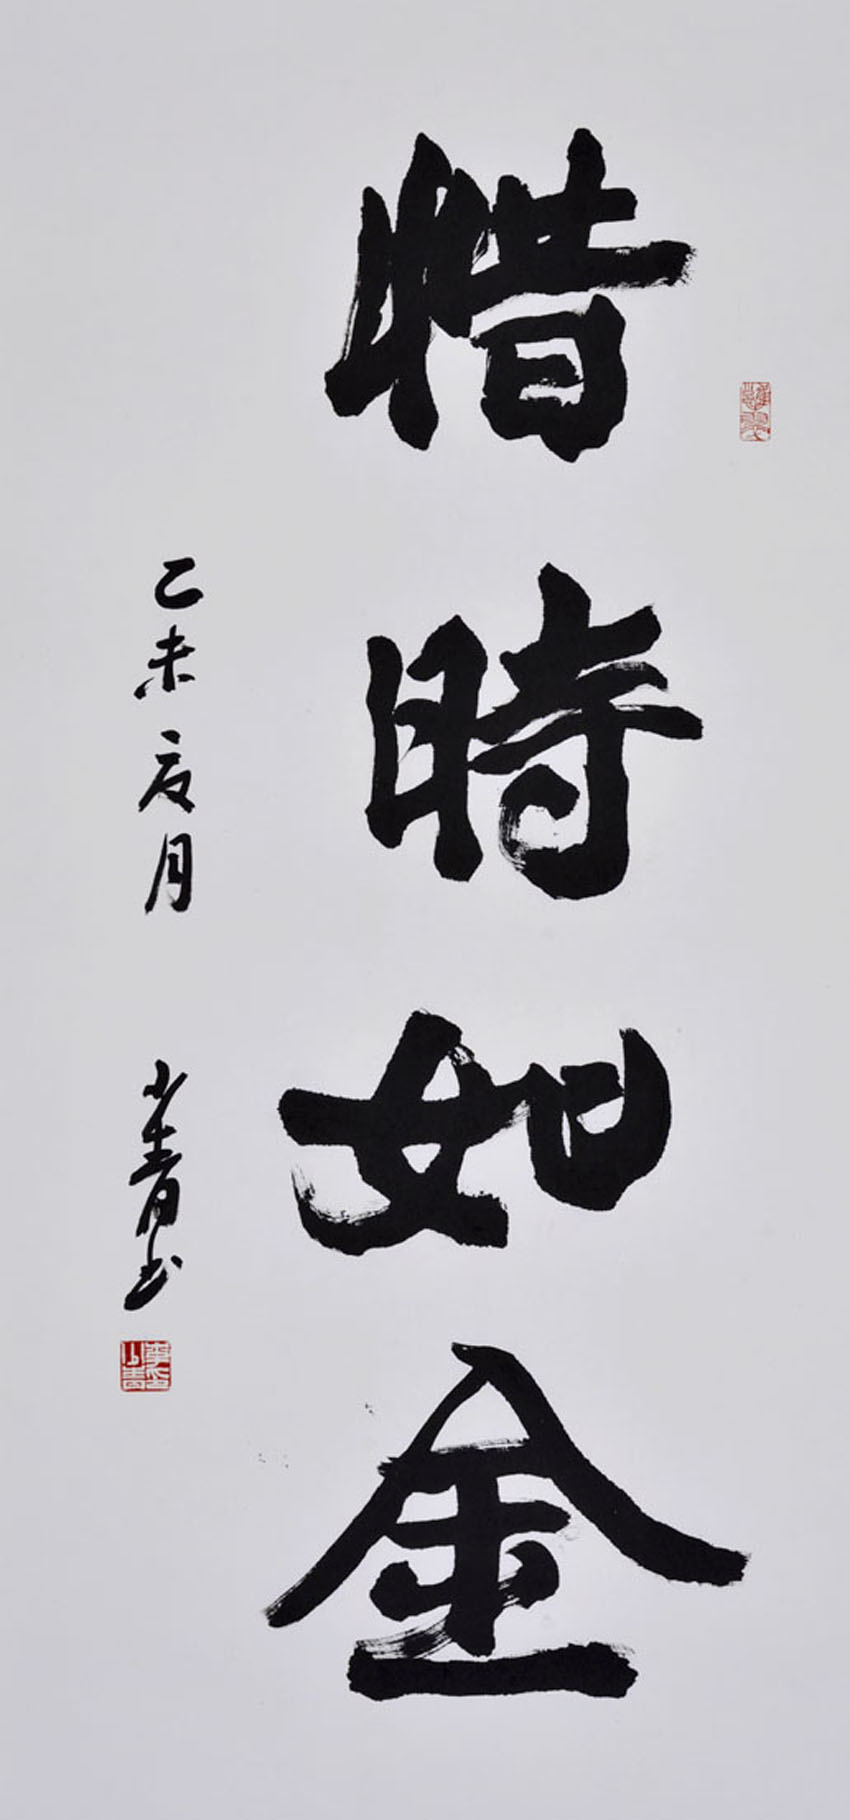 惜時如金
乙未夏月
少青书